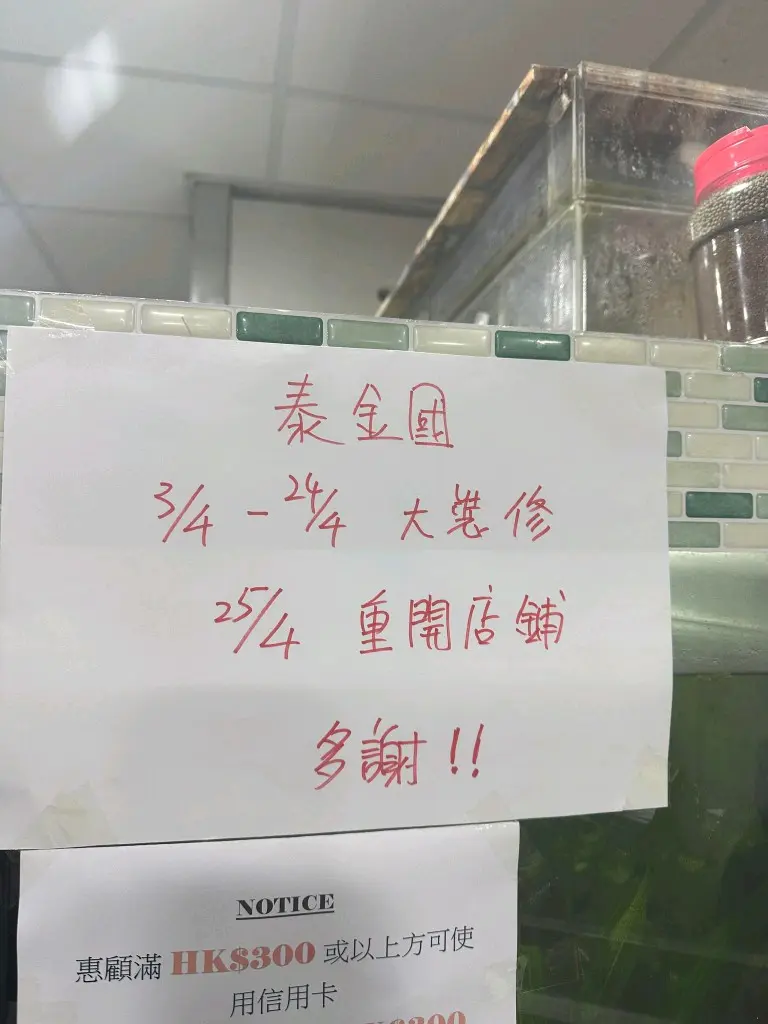 泰金國
3/4 - 24/4 大裝修
25/4 重開店鋪
多謝!!
NOTICE
惠顧滿 HK$300 或以上方可使
用信用卡